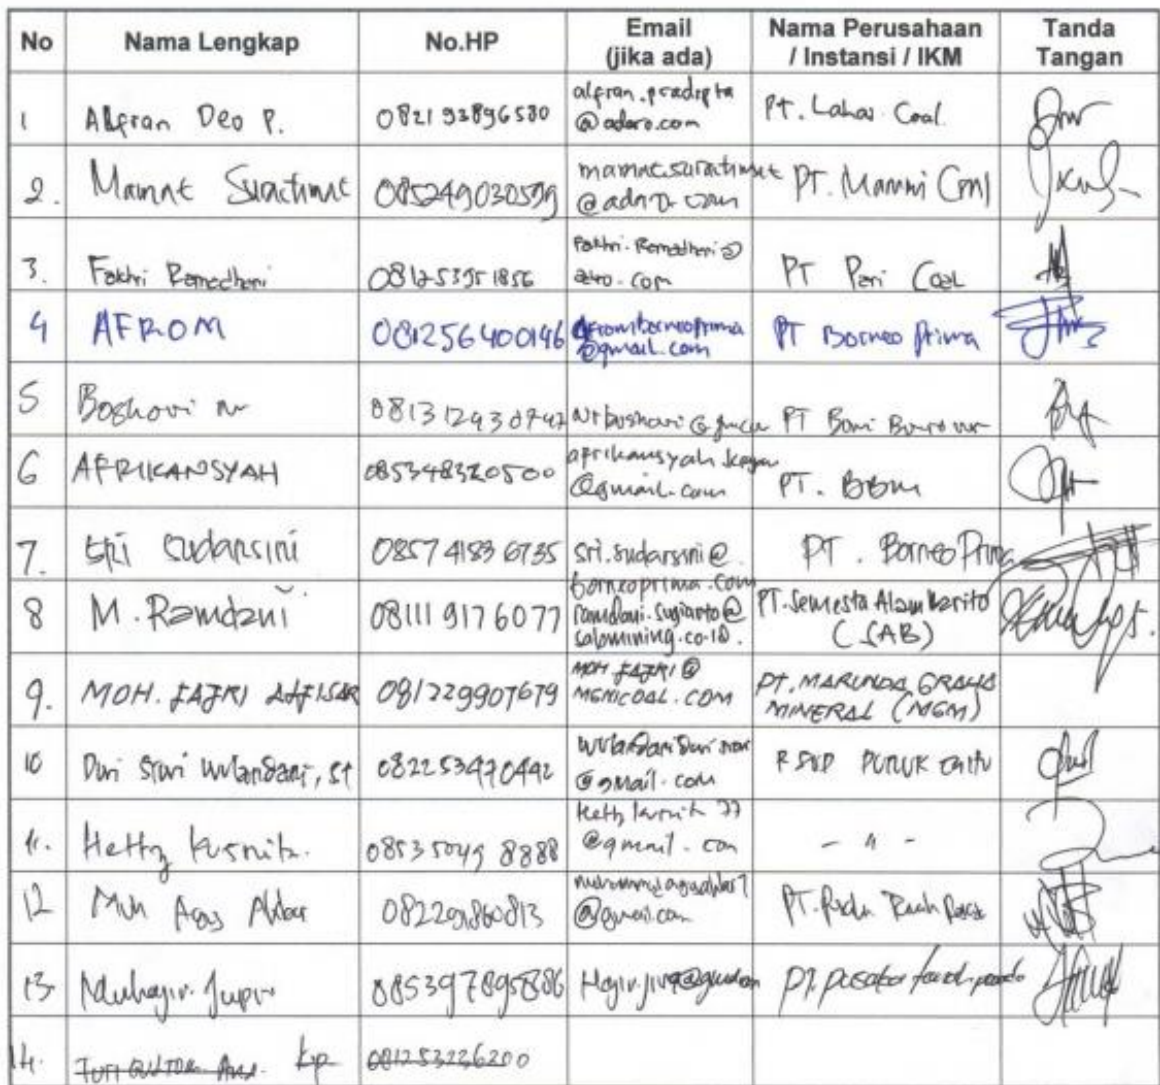 No Nama Lengkap No.HP Email (jika ada) Nama Perusahaan / Instansi / IKM Tanda Tangan
1 Alfran Deo P. 082193896580 alfran.pradipta @adaro.com PT. Lahai Coal
2. Mamat Surachmat 085249030599 mamat.surachmat @adaro.com PT. Coal
3. Fakhri Ramadhani 081253951856 Fakhri.Ramadhani@ adaro.com PT Pari Coal
4 AFROM 081256400146 afromborneoprima @gmail.com PT Borneo Prima
5 Boshovi nr PT
6 AFRIKANSYAH 085348320500 @gmail.com PT. BBM
7. Sri Sudarsini 085741836735 sri.sudarsini@ borneoprima.com PT. Borneo Prima
8 M. Ramdani 081119176077 ramdani.sugianto@ sabmining.co.id. PT. Semesta Alam Barito (SAB)
9. MOH. FAJRI ALFISAR 081229907679 MOH.FAJRI@ MGMCOAL.COM PT. MARUNDA GRAHA MINERAL (MGM)
10 Dwi Suri Wulandari, ST 082253470442 @gmail.com RSUD PURUK CAHU
11. Hetty Kusnita. 085350498888 @gmail.com - " -
12 Muh Agus Akbar 082291860813 @gmail.com PT.
13 Muhajir Jupri 085397895886 PT.
14. Kp 081253226200